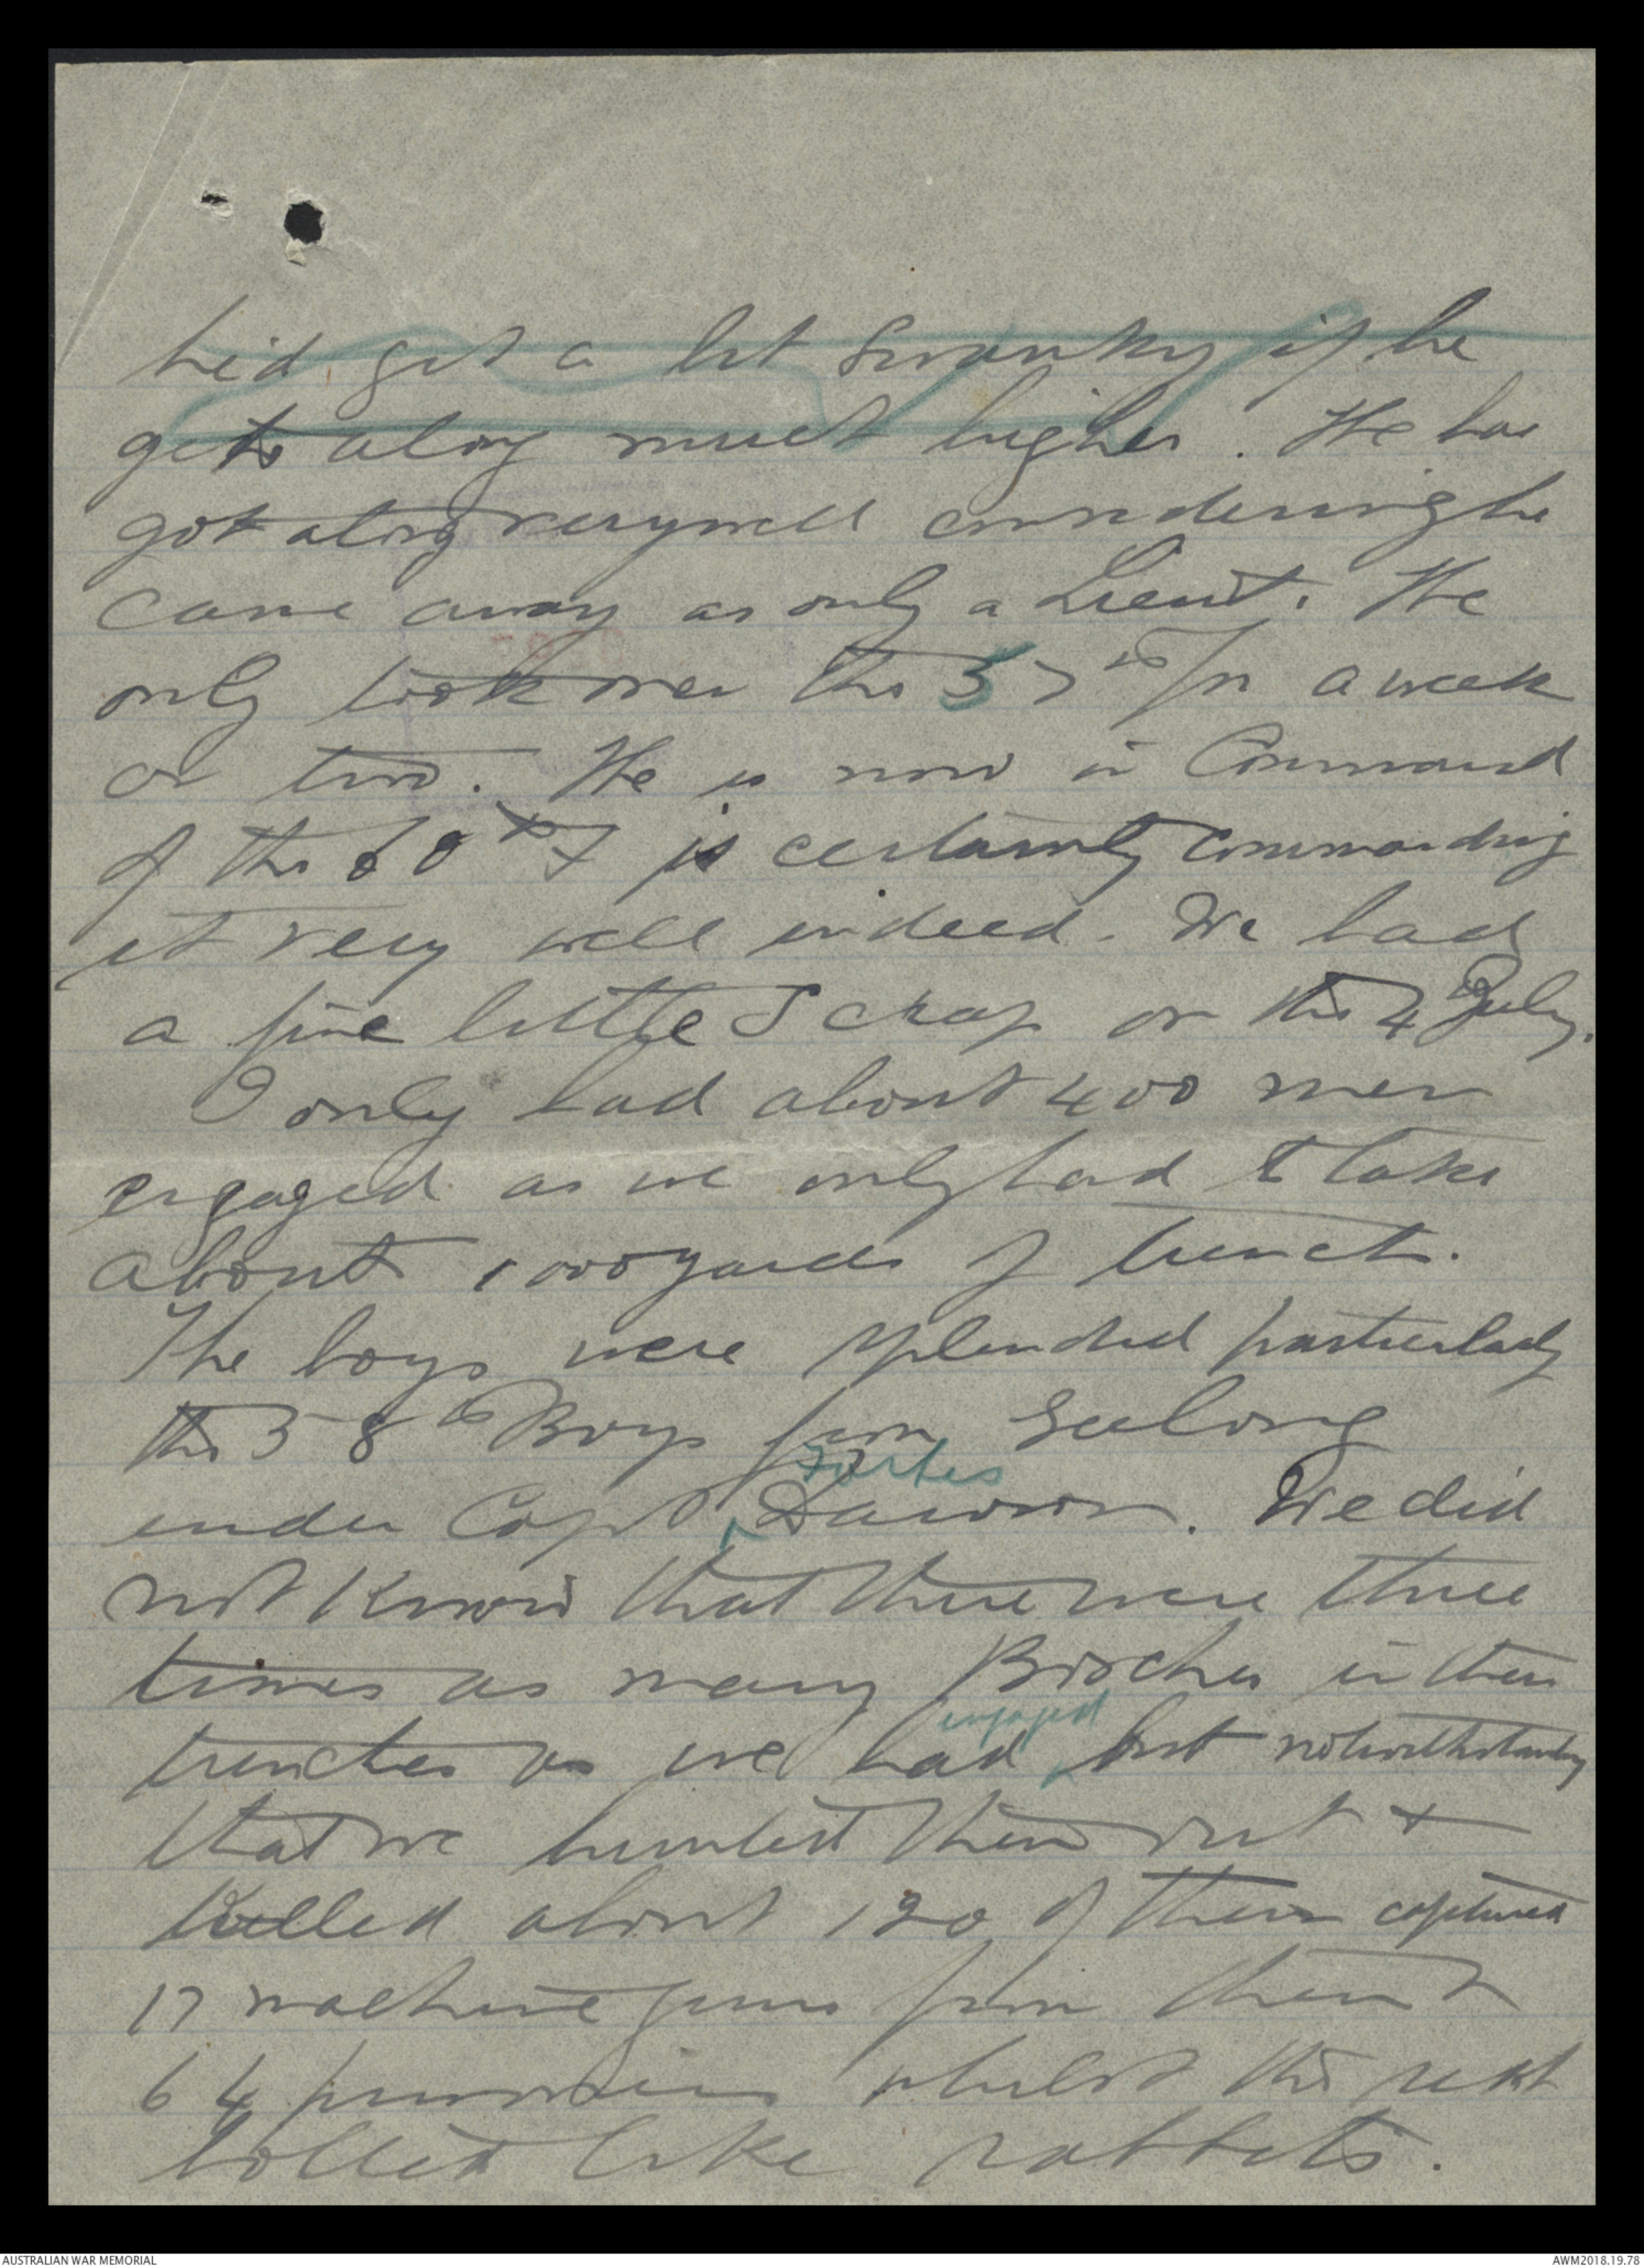 he'd get a bit swanky if he
gets along much higher. He has
got along very well considering he
came away as only a Lieut. He
only took over the 57th for a week
or two. He is now in Command
of the 60th & is certainly commanding
it very well indeed. We had
a fine little Scrap on the 4 July.
I only had about 400 men
engaged as we only had to take
about 1000 yards of trench.
The boys were splendid particularly
the 58th Boys from Geelong
Forbes
under Capt Dawson. We did
not know that there were three
times as many Bosches in their
engaged
trenches as we had but notwithstanding
that we hunted them out &
killed about 120 of them captured
17 machine guns from them &
64 prisoners whilst the rest
bolted like rabbits.
AUSTRALIAN WAR MEMORIAL
AWM2018.19.78